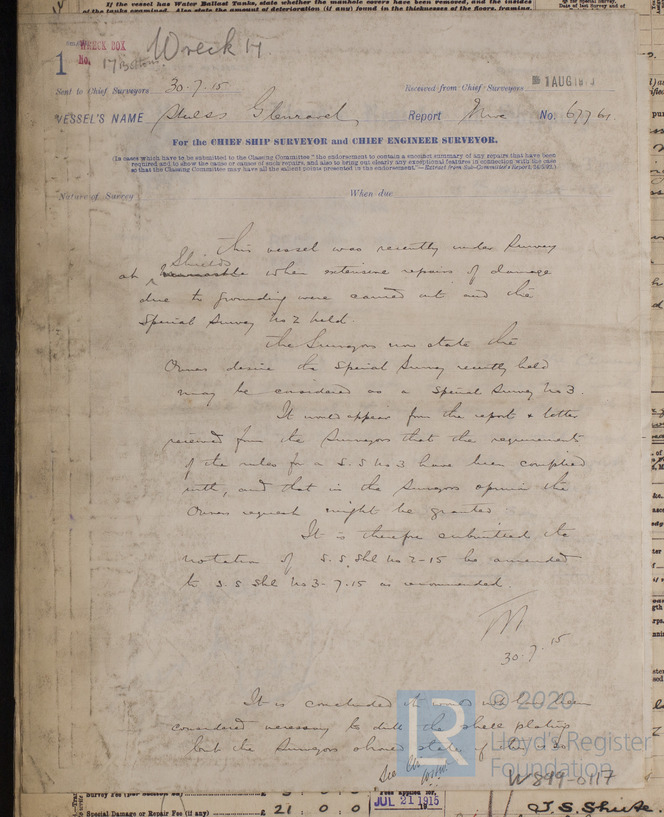 If the vessel has Water Ballast Tanks, state whether the manhole covers have been removed, and the insides
of the tanks examined. Also state the amount of deterioration (if any) found in the thicknesses of the floors, framing,
WRECK BOX
No. 17
Wreck 17
1
Sent to Chief Surveyors 30.7.15
Received from Chief Surveyors 1 AUG
VESSEL'S NAME Glenravel Report Nwc No. 67761
For the CHIEF SHIP SURVEYOR and CHIEF ENGINEER SURVEYOR.
(In cases which have to be submitted to the Classing Committee "the endorsement to contain a succinct summary of any repairs that have been
required and to show the cause or causes of such repairs, and also to bring out clearly any exceptional features in connection with the case
so that the Classing Committee may have all the salient points presented in the endorsement."—Extract from Sub-Committee's Report,
Nature of Survey When due
This vessel was recently under Survey
Shields
at when extensive repairs of damage
due to grounding were carried out and the
Special Survey No 2 held.
The Surveyors now state the
Owners desire the Special Survey recently held
may be considered as a Special Survey No 3.
It would appear from the report & letter
received from the Surveyors that the requirements
of the rules for a S.S No 3 have been complied
with, and that in the Surveyors opinion the
Owners request might be granted.
It is therefore submitted the
notation of S.S. Shl No 2-15 be amended
to S.S Shl No 3-7.15 as recommended.
30.7.15
It is concluded it would
considered necessary to drill the shell plating
but the Surveyors should state if this is so
See
© 2020
Lloyd's Register
Foundation
W899-0117
Survey Fee
Special Damage or Repair Fee (if any) £ 21 : 0 : 0
Fees applied for,
JUL 21 1915